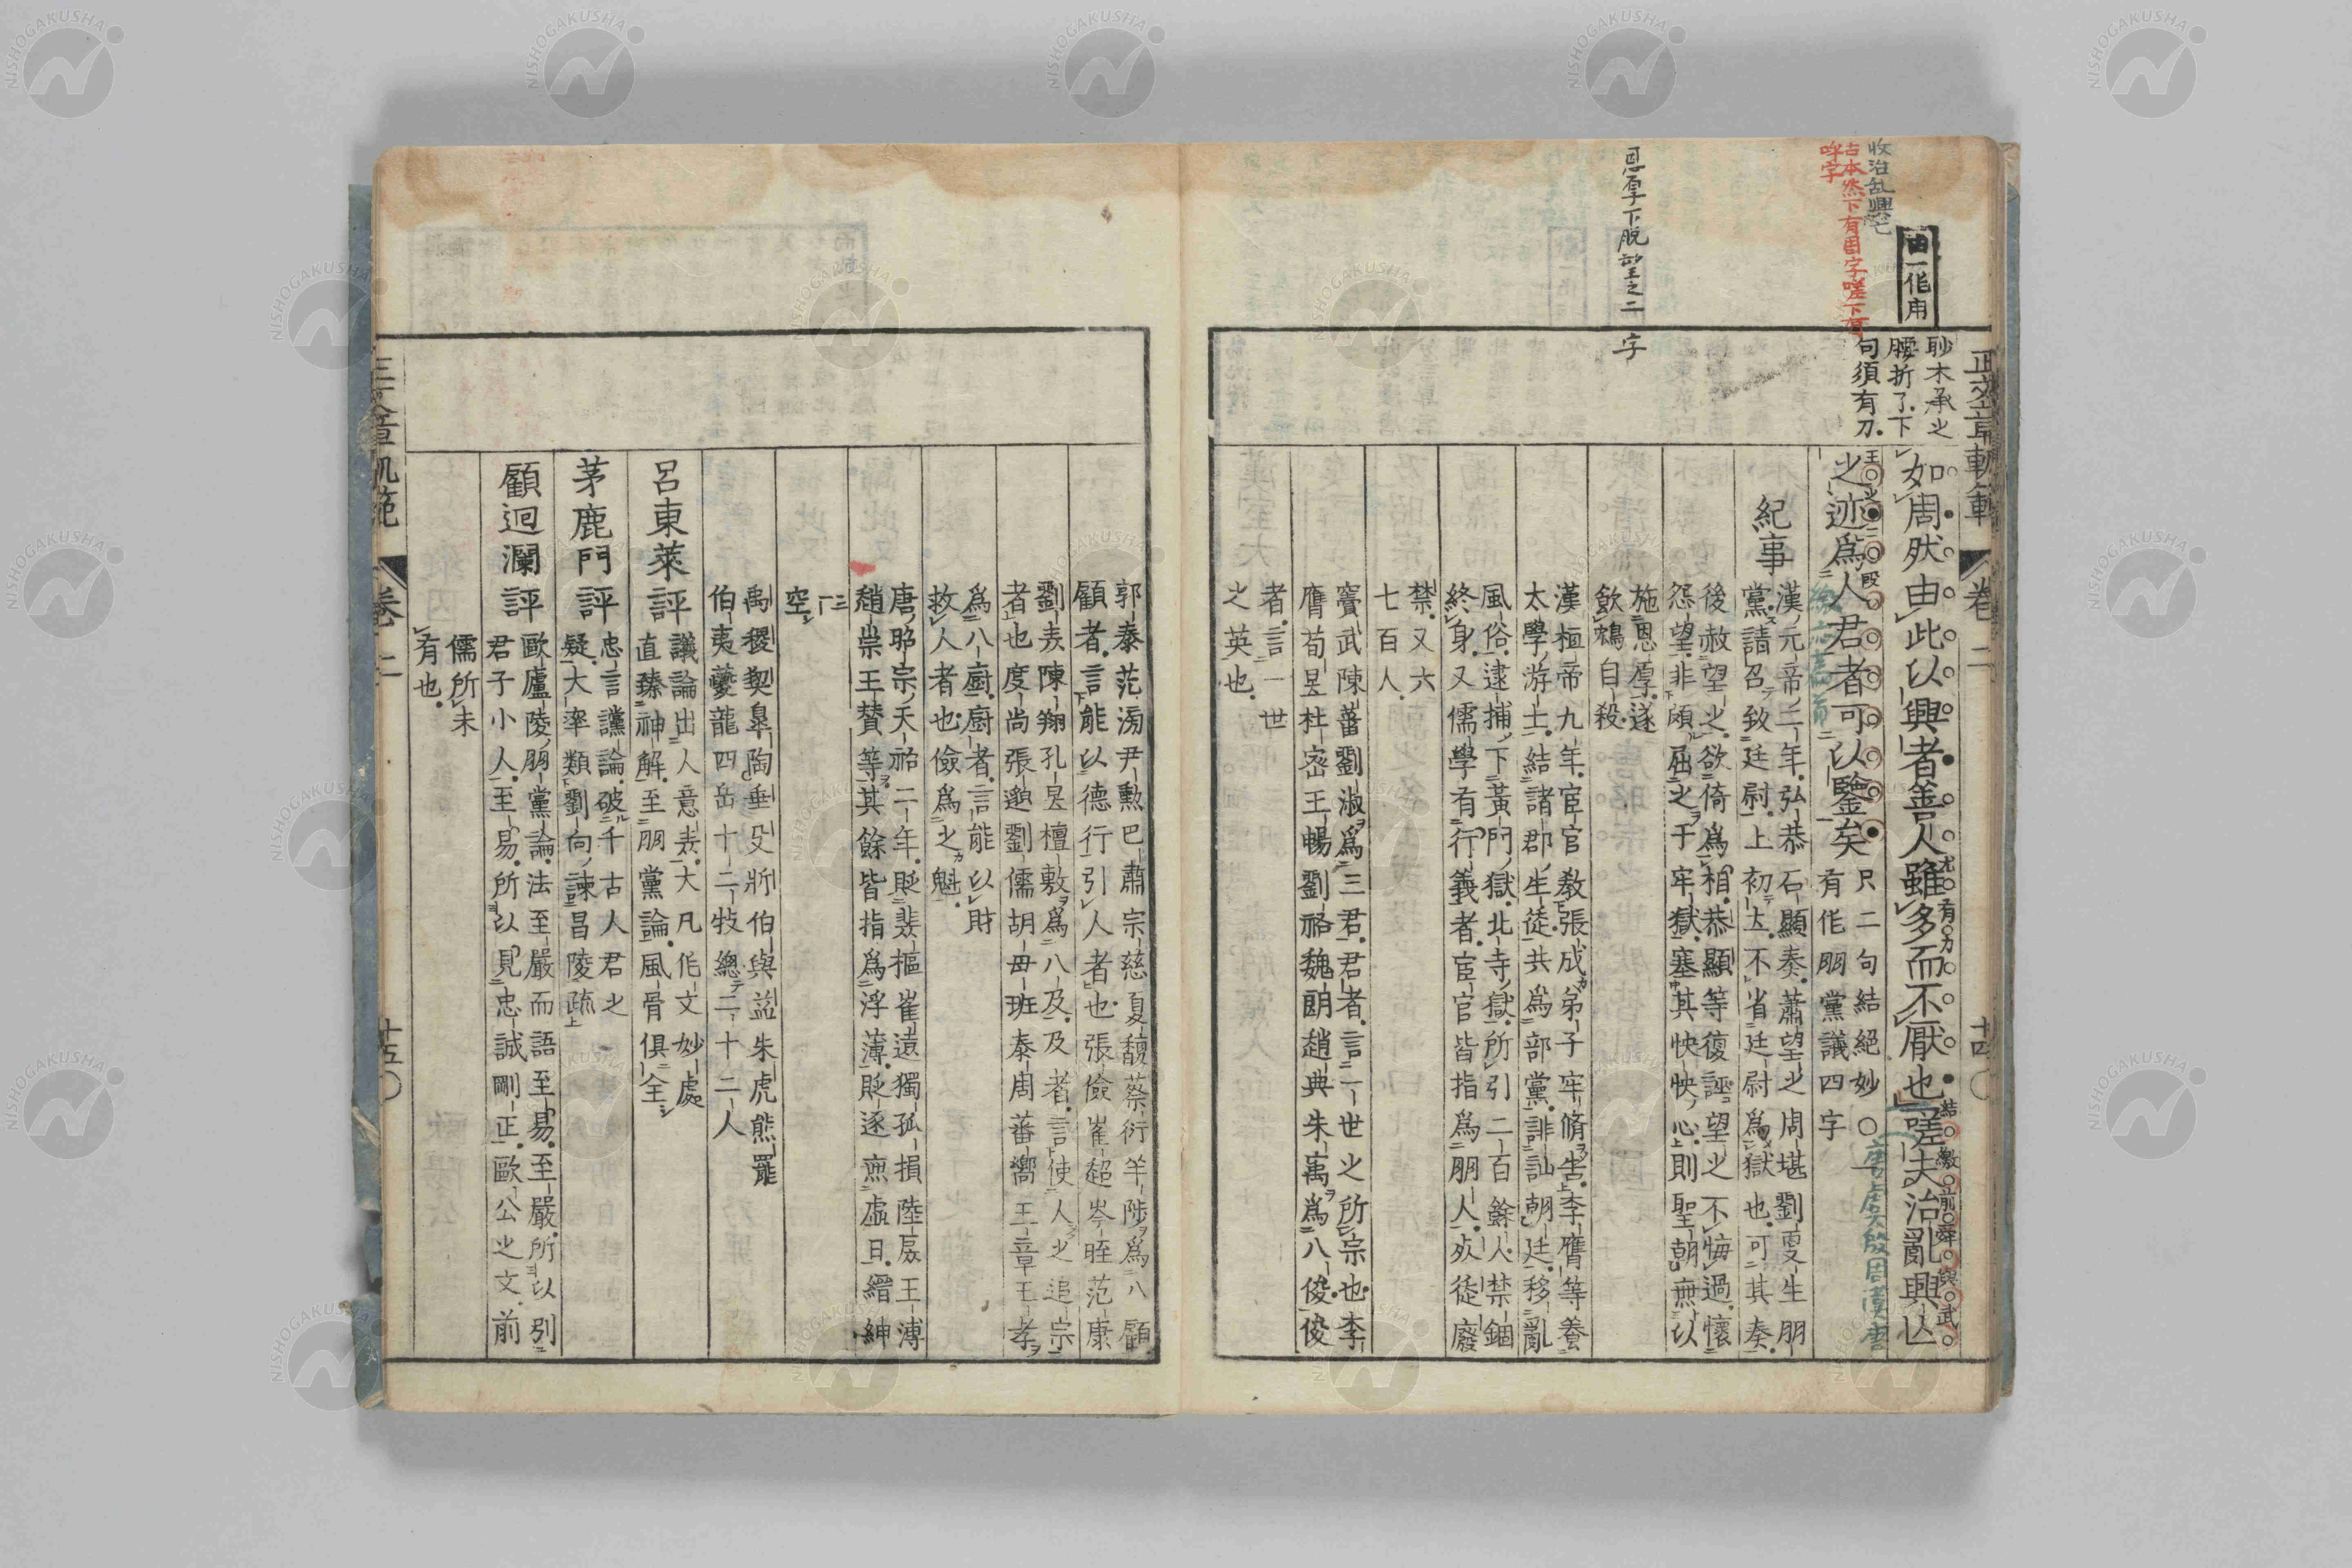 収治乱興亡
古本然下有因字嗟下有
呼字
由一作用
恩厚下脱望之二字
耼木承之
腰折了下
句須有刀
正文章軌範 卷二 十四
如周然由此以興者善人雖多而不厭也嗟夫治亂興亡
之迹爲人君者可以鑒矣
只二句結絕妙○
有作朋黨議四字
紀事
漢元帝二年弘恭石顯奏蕭望之周堪劉更生朋
黨請召致廷尉上初立不省廷尉爲獄也可其奏
後赦望之欲倚爲相恭顯等復誣望之不悔過懷
怨望非頗屈之于牢獄塞其怏怏心則聖朝無以
施恩厚遂
飲鴆自殺
漢桓帝九年宦官教張成弟子牢脩告李膺等養
太學游士結諸郡生徒共爲部黨誹訕朝廷移亂
風俗逮捕下黃門獄北寺獄所引二百餘人禁錮
終身又儒學有行義者宦官皆指爲朋人死徒廢
禁又六
七百人
竇武陳蕃劉淑爲三君君者言一世之所宗也李
膺荀昱杜密王暢劉祐魏朗趙典朱㝢爲八俊俊
者言一世
之英也
郭泰范滂尹勲巴肅宗慈夏馥蔡衍羊陟爲八顧
顧者言能以德行引人者也張儉崔超岑晊范康
劉表陳翔孔昱檀敷爲八及及者言使人之追宗
者也度尚張邈劉儒胡毋班秦周蕃嚮王章王孝
爲八廚廚者言能以財
救人者也儉爲之魁
唐昭宗天祐二年貶裴樞崔遠獨孤損陸扆王溥
趙崇王賛等其餘皆指爲浮薄貶逐無虛日縉紳
一
空
禹稷契皐陶垂殳斨伯與益朱虎熊羆
伯夷夔龍四岳十二牧總二十二人
呂東萊評
議論出人意表大凡作文妙處
直臻神解至朋黨論風骨俱全
茅鹿門評
忠言讜論破千古人君之
疑大率類劉向諫昌陵疏
顧迴瀾評
歐廬陵朋黨論法至嚴而語至易至嚴所以別
君子小人至易所以見忠誠剛正歐公之文前
儒所未
有也
正文章軌範 卷二 十五